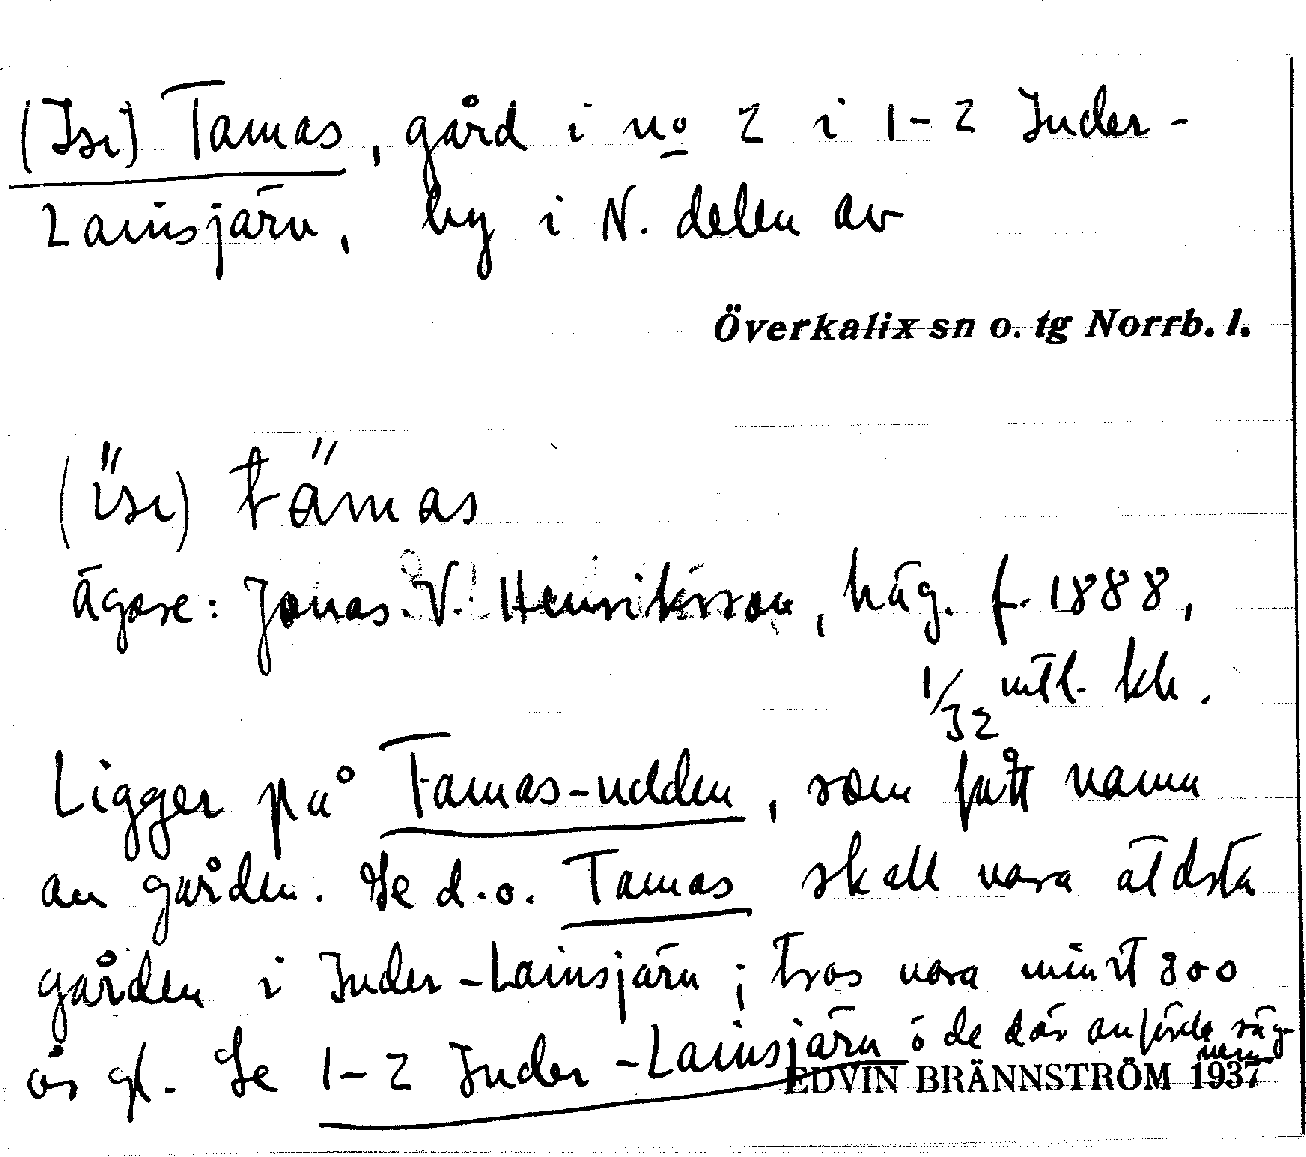 (Isi) Tamas, gård i no 2 i 1-2 Inder-
Lainsjärv, by i N. delen av
Överkalix sn o. tg Norrb. l.
(ïsi) tä̈mas
Ägare: Jonas V. Henriksson, häg. f. 1888,
1/32 mtl. kh.
Ligger på Tamas-udden, som fått namn
av gården. Se d.o. Tamas skall vara äldsta
gården i Inder-Lainsjärv; tros vara minst 800
år gl. Se 1-2 Inder-Lainsjärv o de där anförda säg-
nerna
EDVIN BRÄNNSTRÖM 1937